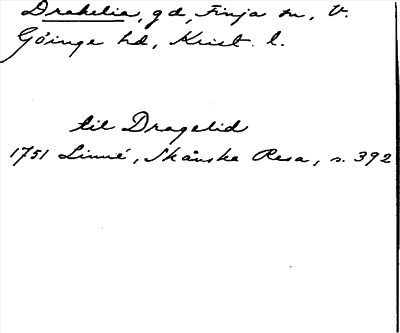 Drakelia, gd, Finja sn, V.
Göinge hd, Krist. l.
till Dragelid
1751 Linné, Skånska Resa, s. 392